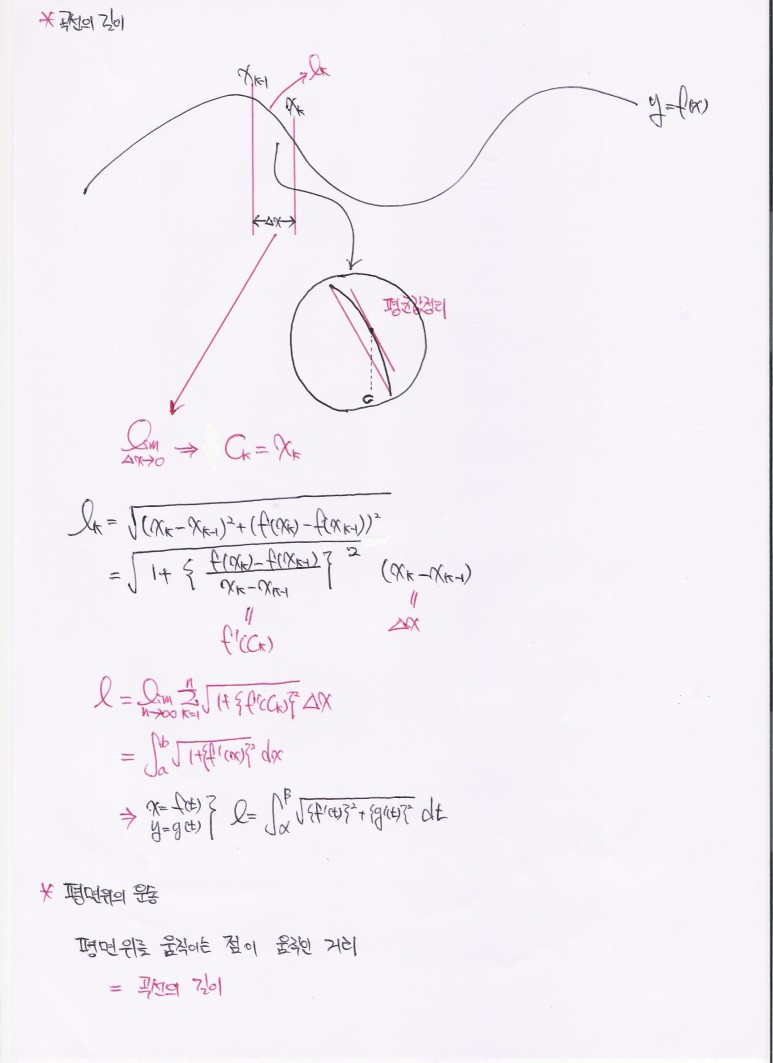 * 곡선의 길이
x_{k-1} l_k
x_k
y=f(x)
←Δx→
평균값정리
c
lim_{Δx→0} ⇒ C_k = x_k
l_k = √((x_k-x_{k-1})²+(f(x_k)-f(x_{k-1}))²)
= √(1+{(f(x_k)-f(x_{k-1}))/(x_k-x_{k-1})}²) (x_k-x_{k-1})
〃 〃
f'(C_k) Δx
l = lim_{n→∞} Σ_{k=1}^{n} √(1+{f'(C_k)}²) Δx
= ∫_a^b √(1+{f'(x)}²) dx
⇒ x=f(t) y=g(t) } l = ∫_α^β √({f'(t)}²+{g'(t)}²) dt
* 평면위의 운동
평면위를 움직이는 점이 움직인 거리
= 곡선의 길이